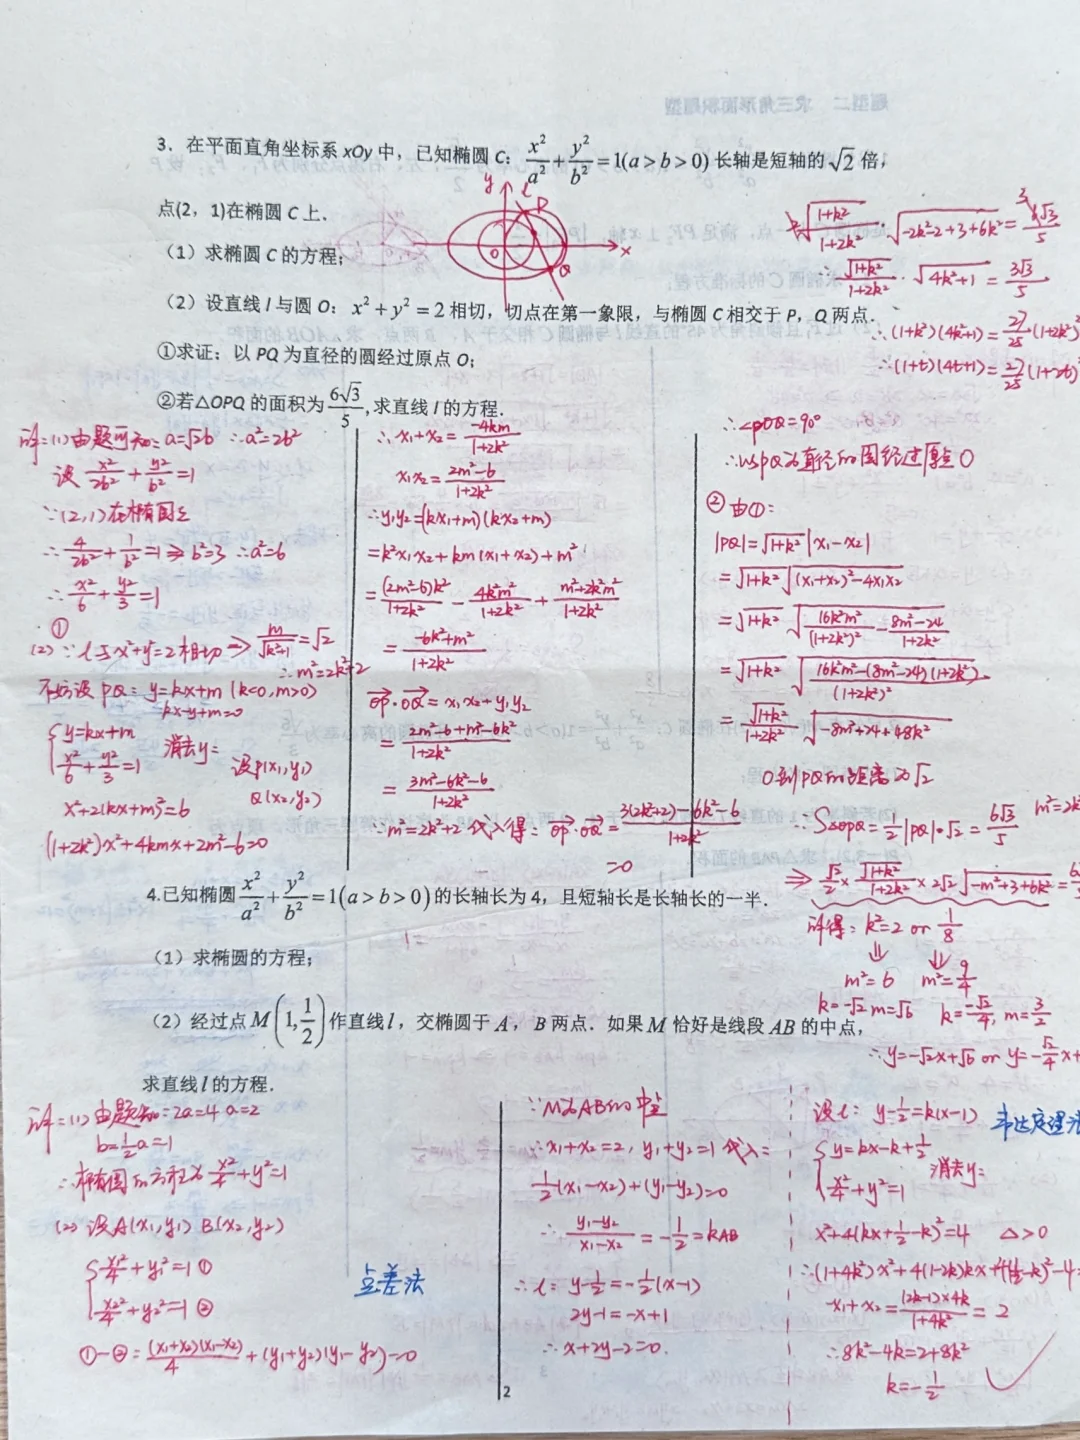 3．在平面直角坐标系 xOy 中，已知椭圆 C：x²/a² + y²/b² = 1(a > b > 0) 长轴是短轴的 √2 倍，
点(2，1)在椭圆 C 上．
（1）求椭圆 C 的方程；
（2）设直线 l 与圆 O：x² + y² = 2 相切，切点在第一象限，与椭圆 C 相交于 P，Q 两点．
①求证：以 PQ 为直径的圆经过原点 O；
②若△OPQ 的面积为 6√3/5，求直线 l 的方程．
y l P
O x
Q
√(1+k²)/(1+2k²) · √(-2k²-2+3+6k²) = 3√3/5
∴ √(1+k²)/(1+2k²) · √(4k²+1) = 3√3/5
∴(1+k²)(4k²+1) = 27/25 (1+2k²)
∴(1+t)(4t+1) = 27/25 (1+2t)
解：(1) 由题可知：a=√2b ∴a²=2b²
设 x²/2b² + y²/b² = 1
∵(2,1)在椭圆上
∴ 4/2b² + 1/b² = 1 ⇒ b²=3 ∴a²=6
∴ x²/6 + y²/3 = 1
①
(2) ∵ l与x²+y²=2相切 ⇒ m/√(k²+1) = √2
∴m²=2k²+2
不妨设 PQ：y=kx+m (k<0, m>0)
kx-y+m=0
{ y=kx+m
x²/6 + y²/3 = 1 消去y：
设P(x₁,y₁)
Q(x₂,y₂)
x²+2(kx+m)²=6
(1+2k²)x²+4kmx+2m²-6=0
∴ x₁+x₂ = -4km/(1+2k²)
x₁x₂ = (2m²-6)/(1+2k²)
∴y₁y₂=(kx₁+m)(kx₂+m)
=k²x₁x₂+km(x₁+x₂)+m²
= (2m²-6)k²/(1+2k²) - 4k²m²/(1+2k²) + (m²+2k²m²)/(1+2k²)
= (-6k²+m²)/(1+2k²)
OP·OQ = x₁x₂+y₁y₂
= (2m²-6+m²-6k²)/(1+2k²)
= (3m²-6k²-6)/(1+2k²)
∵m²=2k²+2 代入得：OP·OQ = (3(2k²+2)-6k²-6)/(1+2k²)
=0
∴∠POQ=90°
∴以PQ为直径的圆经过原点O
② 由①：
|PQ|=√(1+k²)|x₁-x₂|
=√(1+k²) √((x₁+x₂)²-4x₁x₂)
=√(1+k²) √(16k²m²/(1+2k²)² - (8m²-24)/(1+2k²))
=√(1+k²) √((16k²m²-(8m²-24)(1+2k²))/(1+2k²)²)
= √(1+k²)/(1+2k²) √(-8m²+24+48k²)
O到PQ的距离为√2
∴S△OPQ=½|PQ|·√2 = 6√3/5
⇒ √2/2 × √(1+k²)/(1+2k²) × 2√2 √(-m²+3+6k²) =
解得：k²=2 or 1/8
⇓ ⇓
m²=6 m²=9/4
k=-√2 m=√6 k=-√2/4, m=3/2
∴y=-√2x+√6 or y=-√2/4 x+
4.已知椭圆 x²/a² + y²/b² = 1(a > b > 0) 的长轴长为 4，且短轴长是长轴长的一半．
（1）求椭圆的方程；
（2）经过点 M(1, 1/2) 作直线 l，交椭圆于 A，B 两点．如果 M 恰好是线段 AB 的中点，
求直线 l 的方程．
解：(1) 由题知：2a=4 a=2
b=½a=1
∴椭圆的方程为 x²/4 + y²=1
(2) 设A(x₁,y₁) B(x₂,y₂)
{ x₁²/4 + y₁²=1 ①
x₂²/4 + y₂²=1 ②
点差法
①-②：(x₁+x₂)(x₁-x₂)/4 + (y₁+y₂)(y₁-y₂)=0
∵M为AB的中点
∴x₁+x₂=2, y₁+y₂=1 代入：
½(x₁-x₂)+(y₁-y₂)=0
∴ (y₁-y₂)/(x₁-x₂) = -½ = kAB
∴l：y-½=-½(x-1)
2y-1=-x+1
∴x+2y-2=0.
设l：y-½=k(x-1) 韦达定理法
{ y=kx-k+½
x²/4 + y²=1 消去y：
x²+4(kx+½-k)²=4 △>0
∴(1+4k²)x²+4(1-2k)kx+4(½-k)²-4=
x₁+x₂ = (2k-1)×4k/(1+4k²) = 2
∴8k²-4k=2+8k²
k=-½
2